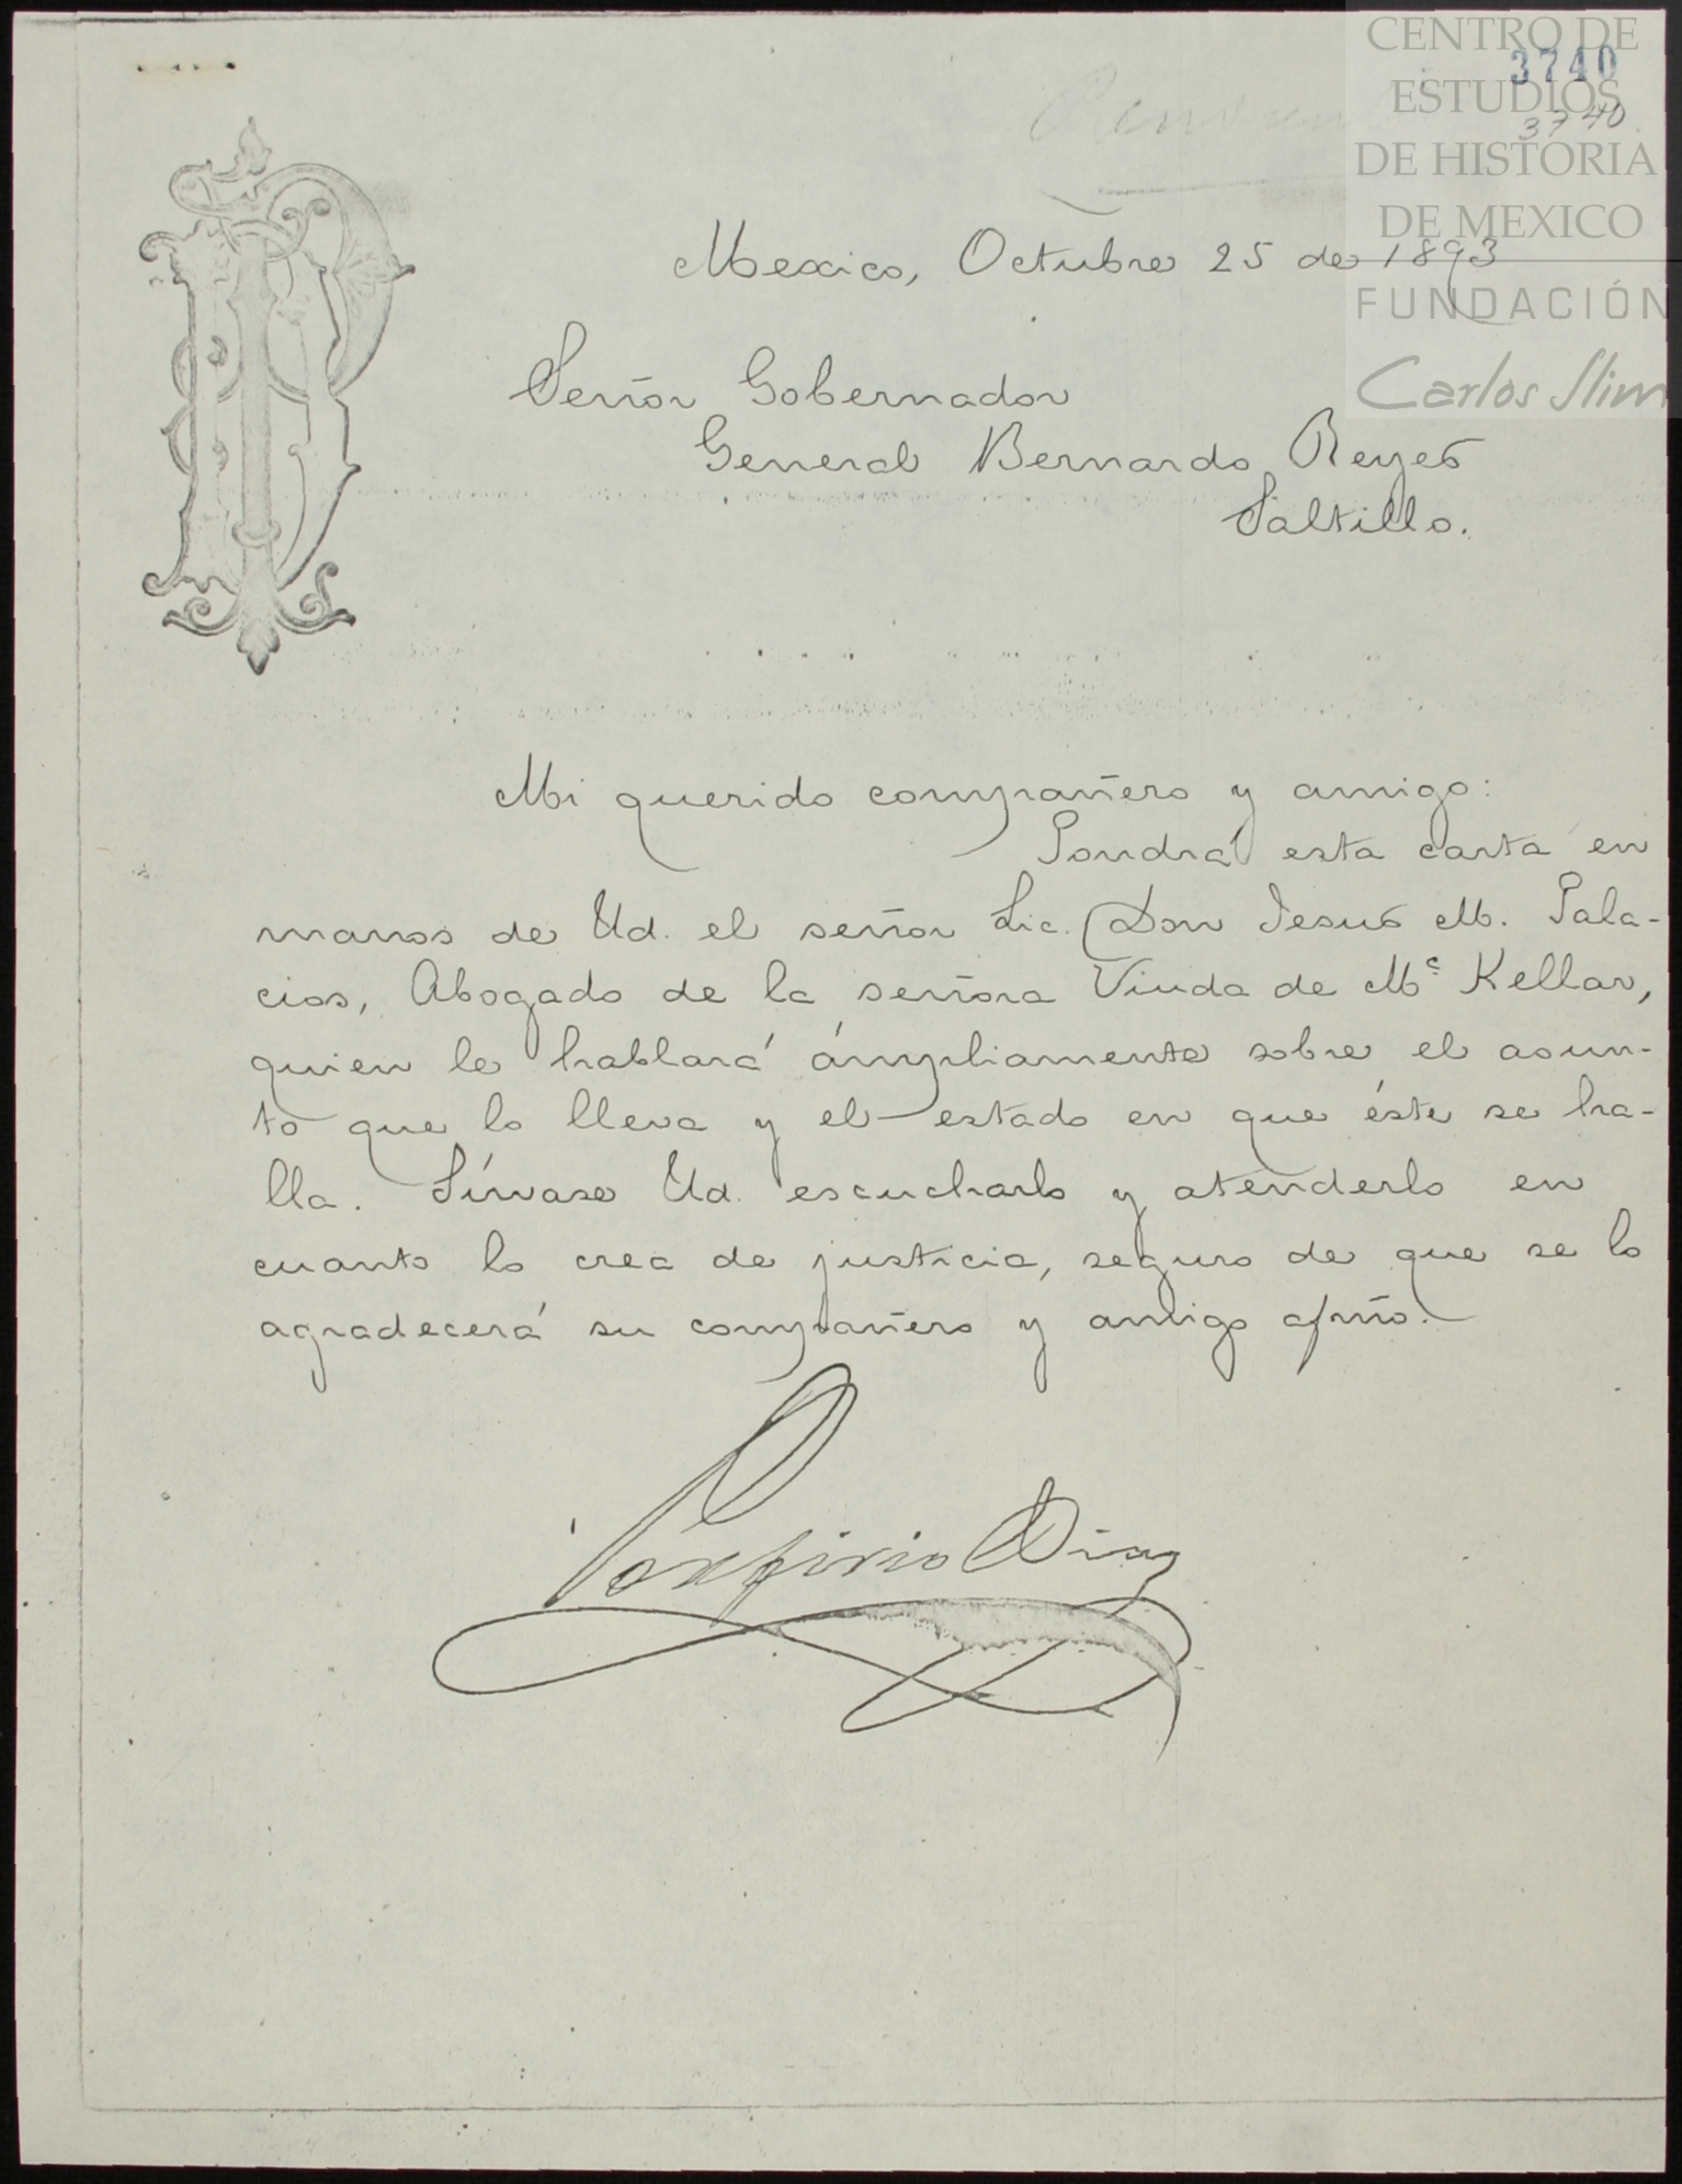 CENTRO DE
ESTUDIOS
DE HISTORIA
DE MEXICO
FUNDACIÓN
Carlos Slim
3740
3740
Mexico, Octubre 25 de 1893
Señor Gobernador
General Bernardo Reyes
Saltillo.
Mi querido compañero y amigo:
Pondrá esta carta en
manos de Ud. el señor Lic. Don Jesus M. Pala-
cios, Abogado de la señora Viuda de Mc Kellar,
quien le hablará ámpliamente sobre el asun-
to que lo lleva y el estado en que éste se ha-
lla. Sírvase Ud. escucharlo y atenderlo en
cuanto lo crea de justicia, seguro de que se lo
agradecerá su compañero y amigo afmo.
Porfirio Diaz